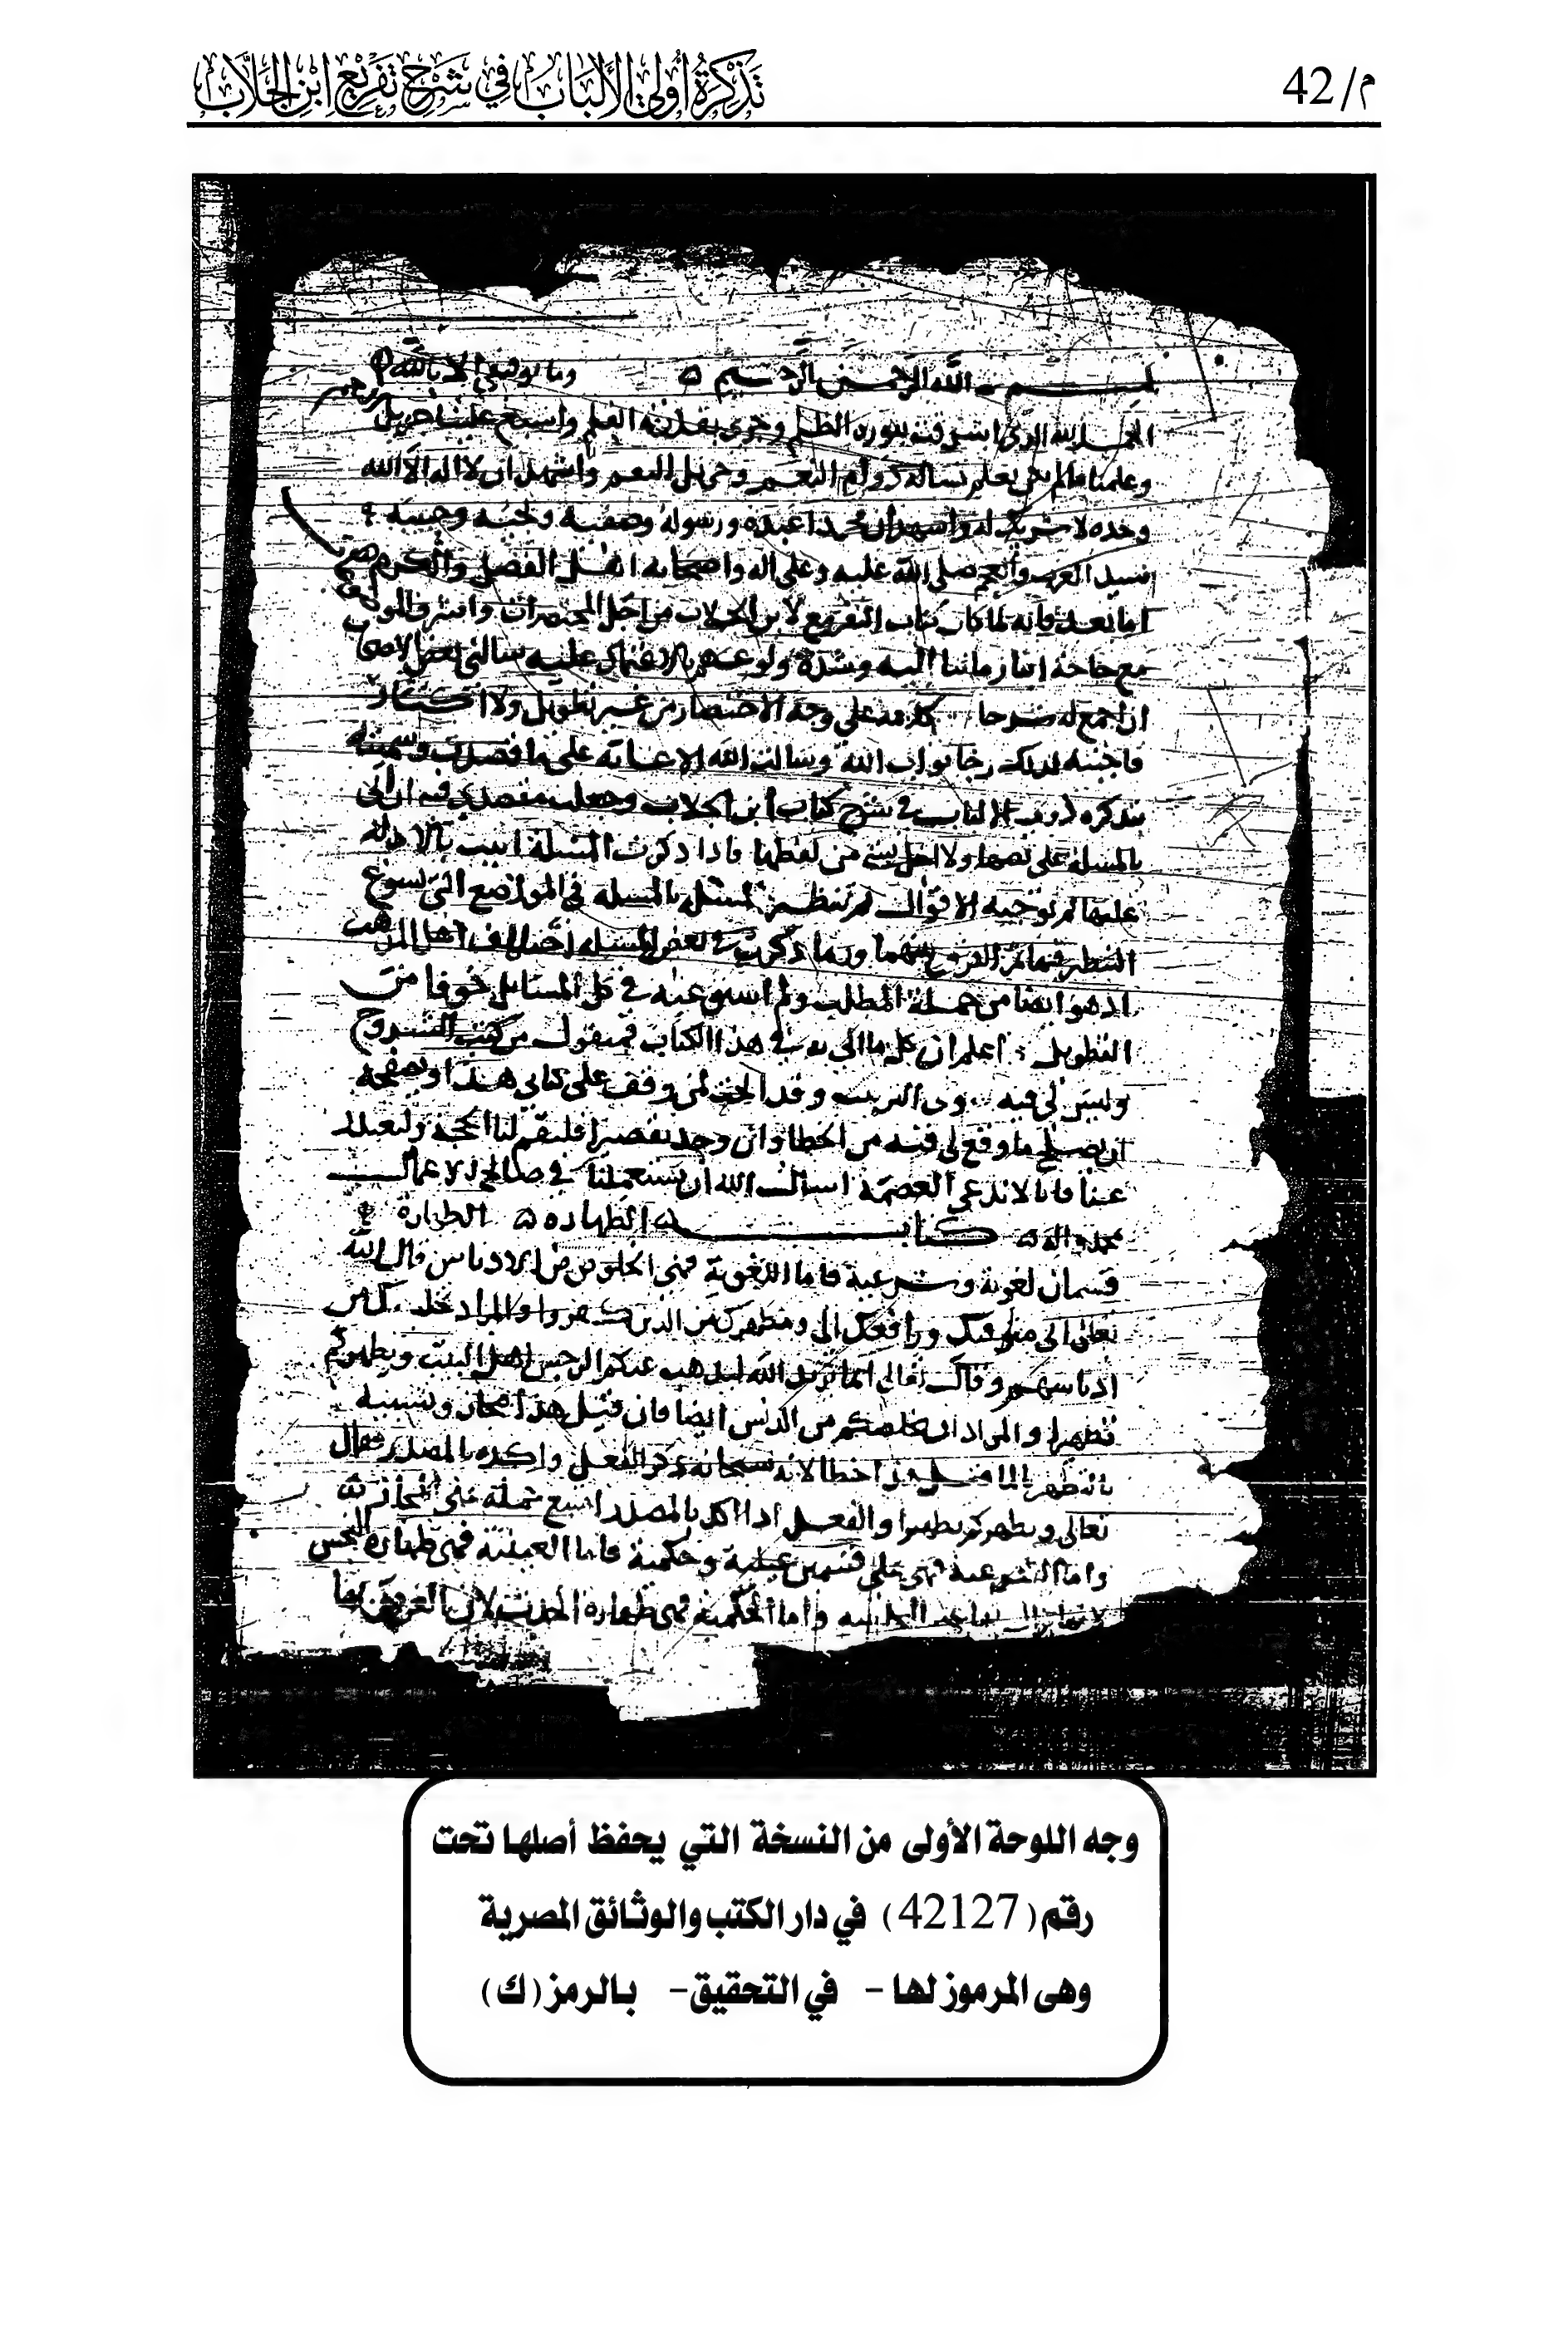 م/42
تَذْكِرَةُ أُولِي الأَلْبَابِ فِي شَرْحِ تَفْرِيعِ ابْنِ الجَلَّابِ
بسم الله الرحمن الرحيم وما توفيقي الا بالله
الحمد لله الذي اشرقت بنوره الظلم وجرى بقدرته القلم واسبغ علينا
وعلمنا ما لم نكن نعلم نساله دوام النعم وجزيل النعم واشهد ان لا اله الا الله
وحده لا شريك له واشهد ان محمدا عبده ورسوله وصفيه وحبيبه
سيد العرب والعجم صلى الله عليه وعلى اله واصحابه اهل الفضل والكرم
اما بعد فانه لما كان كتاب التفريع لابن الجلاب من اجل المختصرات
مع حاجة ابنا زماننا اليه وشدة ولوعهم بالاشتغال عليه سالني بعض الاصحاب
ان اجمع له شرحا على وجه الاختصار من غير تطويل ولا اكثار
فاجبته لذلك رجا ثواب الله وسالت الله الاعانة على ما قصدت وسميته
بتذكرة اولي الالباب في شرح كتاب ابن الجلاب وجعلت مقصدي فيه ان اتي
بالمسلة على نصها ولا اخل بشي من لفظها فاذا ذكرت المسلة اتيت بالادلة
عليها ثم توجيه الاقوال ثم تنظير المسلة بالمسلة في المواضع التي يسوغ
النظير فيها ثم الفروع بينهما وربما ذكرت في بعض المسلة اختلاف اهل المذهب
اذ هو ايضا من جملة المطلب ولم استوعبه في كل المسائل خوفا من
التطويل اعلم ان كل ما اتي به في هذا الكتاب فمنقول من كتب الشروح
وليس لي فيه سوى الترتيب وقد ابحت لمن وقف على كتابي هذا او تصفحه
ان يصلح ما وقع لي فيه من الخطا وان وجد تقصيرا فليقم لنا الحجة وليعتذر
عنا فانا لا ندعي العصمة اسال الله ان يستعملنا في صالح الاعمال
بمحمد واله كتاب الطهارة الطهارة
قسمان لغوية وشرعية فاما اللغوية فهي الخلوص من الادناس قال الله
تعالى اني متوفيك ورافعك الي ومطهرك من الذين كفروا والمراد مخلصك من
ادناسهم وقال تعالى انما يريد الله ليذهب عنكم الرجس اهل البيت ويطهركم
تطهيرا والمراد ان يخلصكم من الدنس ايضا فان قيل هذا مجاز وتشبيه
بالتطهر بالما قيل هذا خطا لانه سبحانه ذكر الفعل واكده بالمصدر فقال
تعالى ويطهركم تطهيرا والفعل اذا اكد بالمصدر امتنع حمله على المجاز
واما الشرعية فهي على قسمين عينية وحكمية فاما العينية فهي طهارة النجس
واما الحكمية فهي طهارة الحدث لان
وجه اللوحة الأولى من النسخة التي يحفظ أصلها تحت
رقم (42127) في دار الكتب والوثائق المصرية
وهى المرموز لها - في التحقيق - بالرمز (ك)